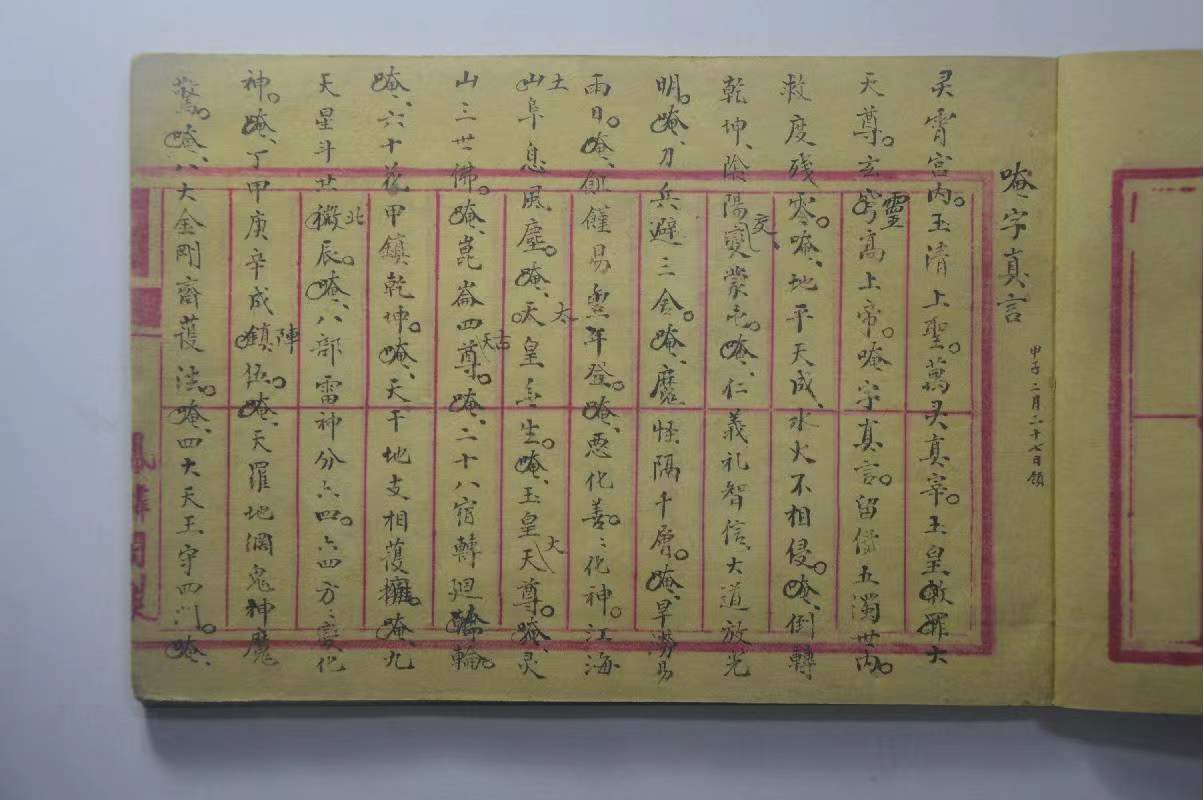 唵字真言
甲子二月二十七日領
灵霄宫内。玉清上聖。萬灵真宰。玉皇赦罪大
天尊。玄穹靈高上帝。唵字真言。留傳五濁世内。
救度殘零。唵、地平天成、水火不相侵。唵、倒轉
乾坤、陰陽變交蒙屯。唵、仁義礼智信、大道放光
明。唵、刀兵避三舍。唵、魔怪隔千層。唵、旱澇易
雨日。唵、飢饉易豊年登。唵、惡化善〻化神。江海
山土阜息風塵。唵、天太皇無生。唵、玉皇天大尊。唵、灵
山三世佛。唵、崑崙四尊天古。唵、二十八宿轉廻輪
唵、六十花甲鎮乾坤。唵、天干地支相護擁。唵、九
天星斗北辰。唵、八部雷神分六四。六四方〻變化
神。唵、丁甲庚辛成鎮陣伍。唵、天羅地網鬼神魔
驚。唵、八大金剛齊護法。唵、四大天王守四門。唵、